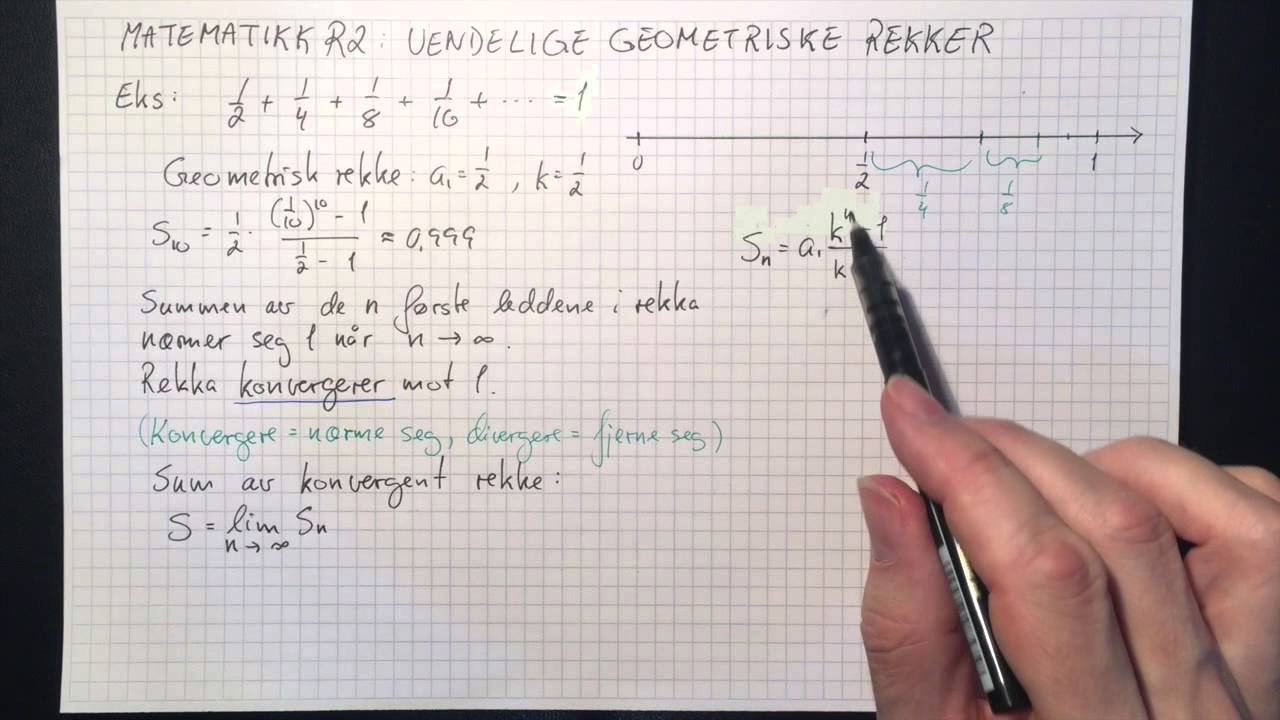 MATEMATIKK R2: UENDELIGE GEOMETRISKE REKKER
Eks: 1/2 + 1/4 + 1/8 + 1/16 + ... = 1
0 1/2 1
1/4 1/8
Geometrisk rekke: a₁ = 1/2, k = 1/2
S₁₀ = 1/2 · ((1/10)¹⁰ - 1)/(1/2 - 1) ≈ 0,999
Sₙ = a₁ (kⁿ - 1)/(k
Summen av de n første leddene i rekka
nærmer seg 1 når n → ∞.
Rekka konvergerer mot 1.
(Konvergere = nærme seg, divergere = fjerne seg)
Sum av konvergent rekke:
S = lim Sₙ
n → ∞